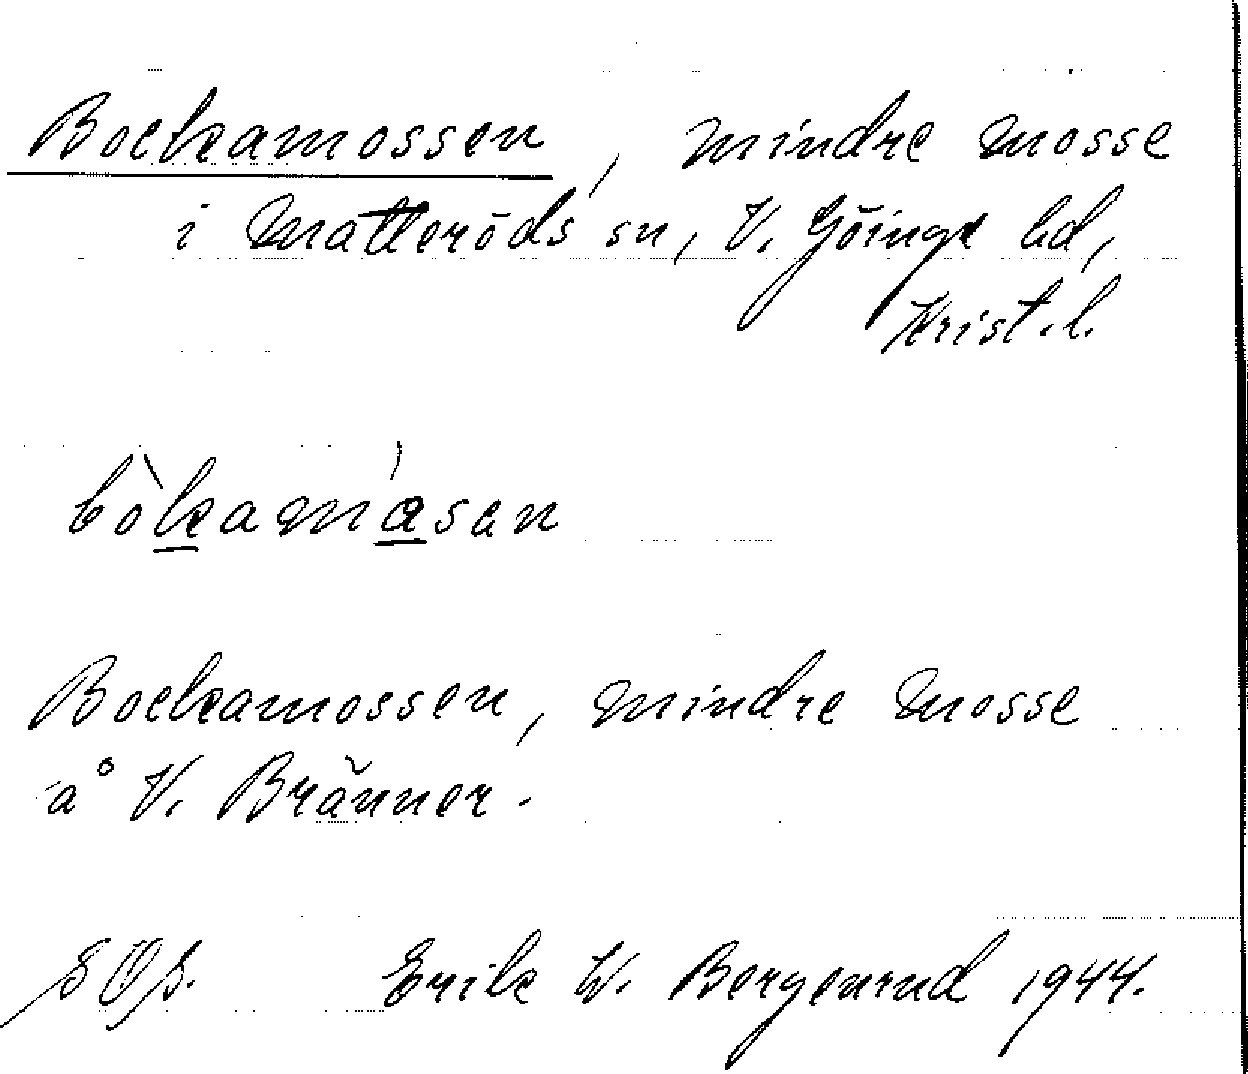 Bockamossen, mindre mosse
i Matteröds sn, V. Göinge hd,
Krist.l.
bòkamásan
Bockamossen, mindre mosse
å V. Bränner.
SOS. Erik W. Bergenrud 1944.